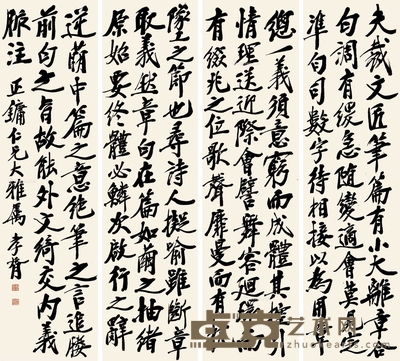 夫裁文匠筆篇有小大離章合
句調有緩急隨變適會莫見定
準句司數字待相接以爲用章
總一義須意窮而成體其控引
情理送迎際會譬舞容迴環而
有綴兆之位歌聲靡曼而有抗
墜之節也尋詩人擬喻雖斷章
取義然章句在篇如繭之抽緒
原始要終體必鱗次啟行之辭
逆萌中篇之意絕筆之言追媵
前句之旨故能外文綺交內義
脈注 正鏞仁兄大雅屬 李